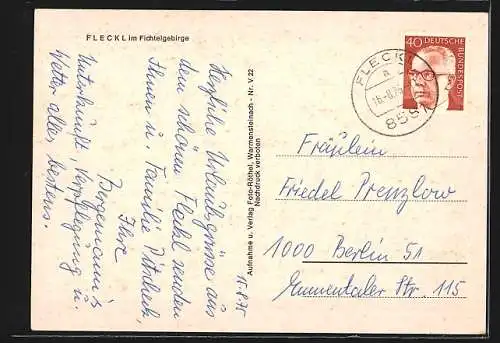 FLECKL im Fichtelgebirge
15.8.75
Herzliche Urlaubsgrüsse aus
dem schönen Fleckl senden
Ihnen u. Familie
Ihre
Borgemann's
Unterkunft, Verpflegung u.
Wetter alles bestens.
Aufnahme u. Verlag Foto-Röthel, Warmensteinach - Nr. V 22
Nachdruck verboten
FLECKL
a
8581
40 DEUTSCHE
BUNDESPOST
Fräulein
Friedel Prenzlow
1000 Berlin 51
Emmentaler Str. 115